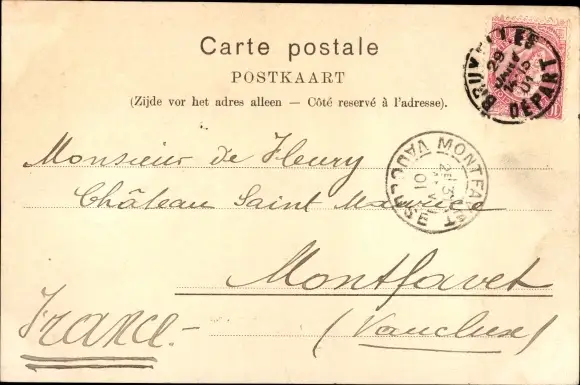 Carte postale
POSTKAART
(Zijde vor het adres alleen — Côté reservé à l'adresse).
BRUXELLES
29
01
DEPART
MONTFAVET
VAUCLUSE
01
Monsieur de Fleury
Château Saint Maurice
Montfavet
(Vaucluse)
France.-